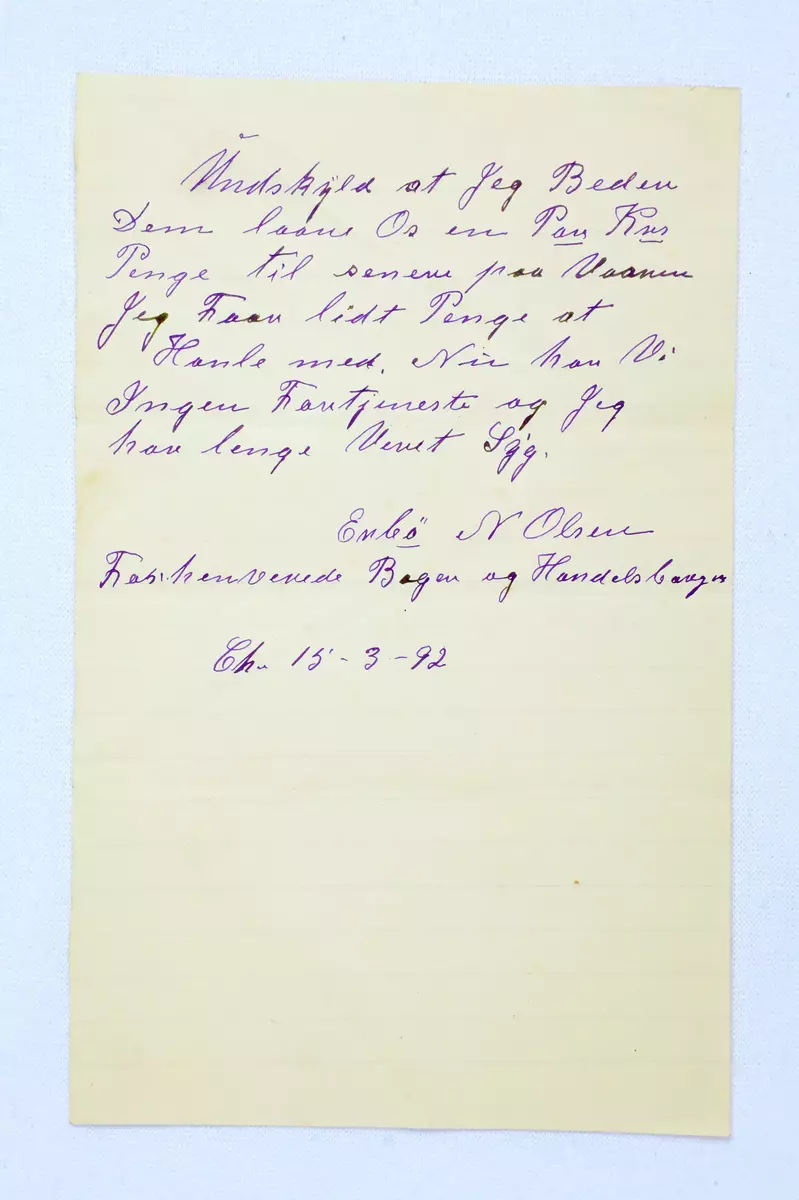 Undskyld at Jeg Beder
Dem laane Os en Par Krs
Penge til senere paa Vaaren
Jeg Faar lidt Penge at
Hanle med. Nu har Vi
Ingen Fortjeneste og Jeg
har lenge Veret Syg.
Enbö N Olsen
Forhenverede Bager og Handelsborger
Ch. 15-3-92